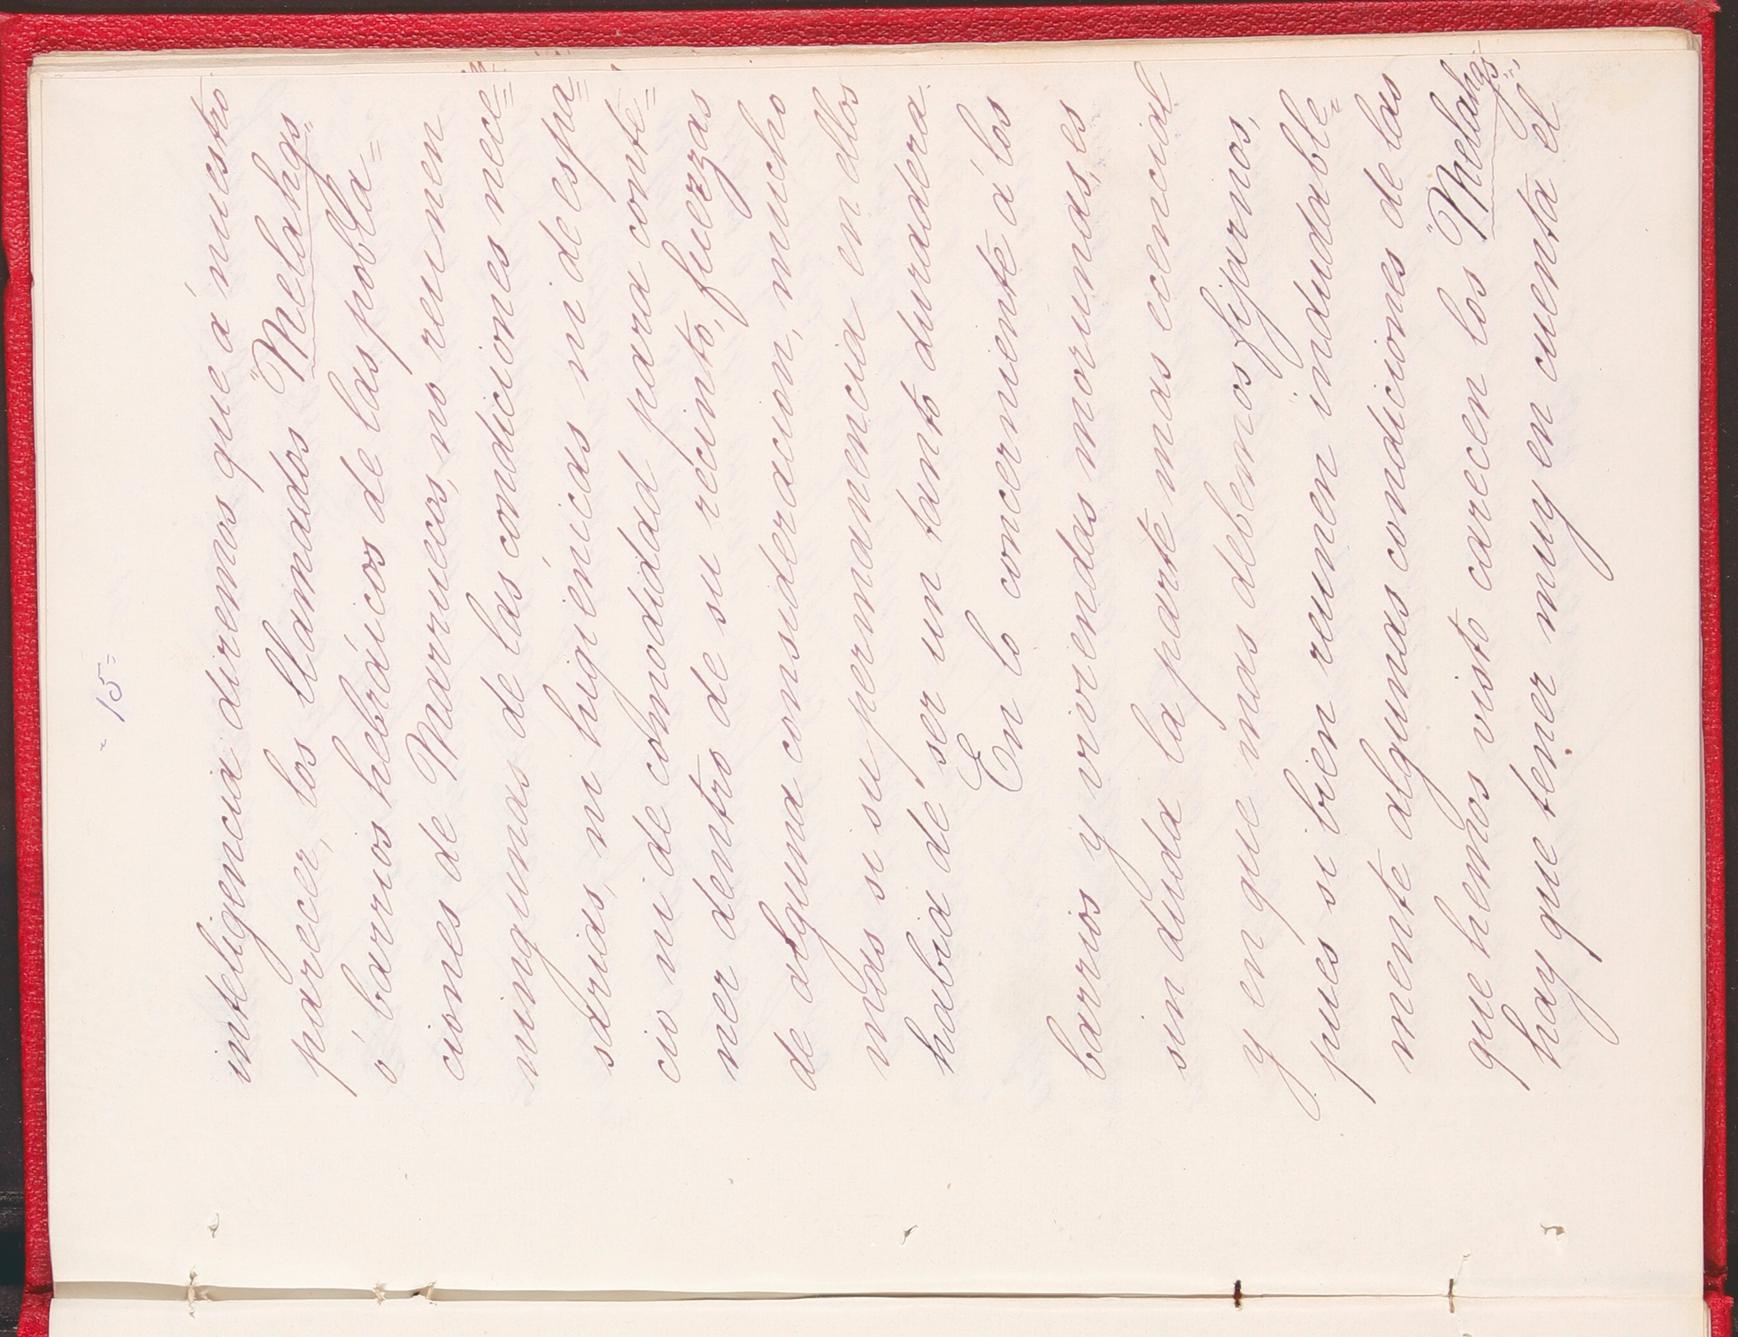 - 15 =
inteligencia diremos que á nuestro
parecer, los llamados "Melahgs"
ó barrios hebráicos de las pobla=
ciones de Marruecos, no reunen
ningunas de las condiciones nece=
sarias, ni higiénicas ni de espa=
cio ni de comodidad para conte=
ner dentro de su recinto, fuerzas
de alguna consideracion, mucho
mas si su permanencia en ellos
habia de ser un tanto duradera.
En lo concerniente á los
barrios y viviendas morunas, es
sin duda la parte mas ecencial
y en que mas debemos fijarnos,
pues si bien reunen indudable=
mente algunas condiciones de las
que hemos visto carecen los "Melahgs"
hay que tener muy en cuenta el